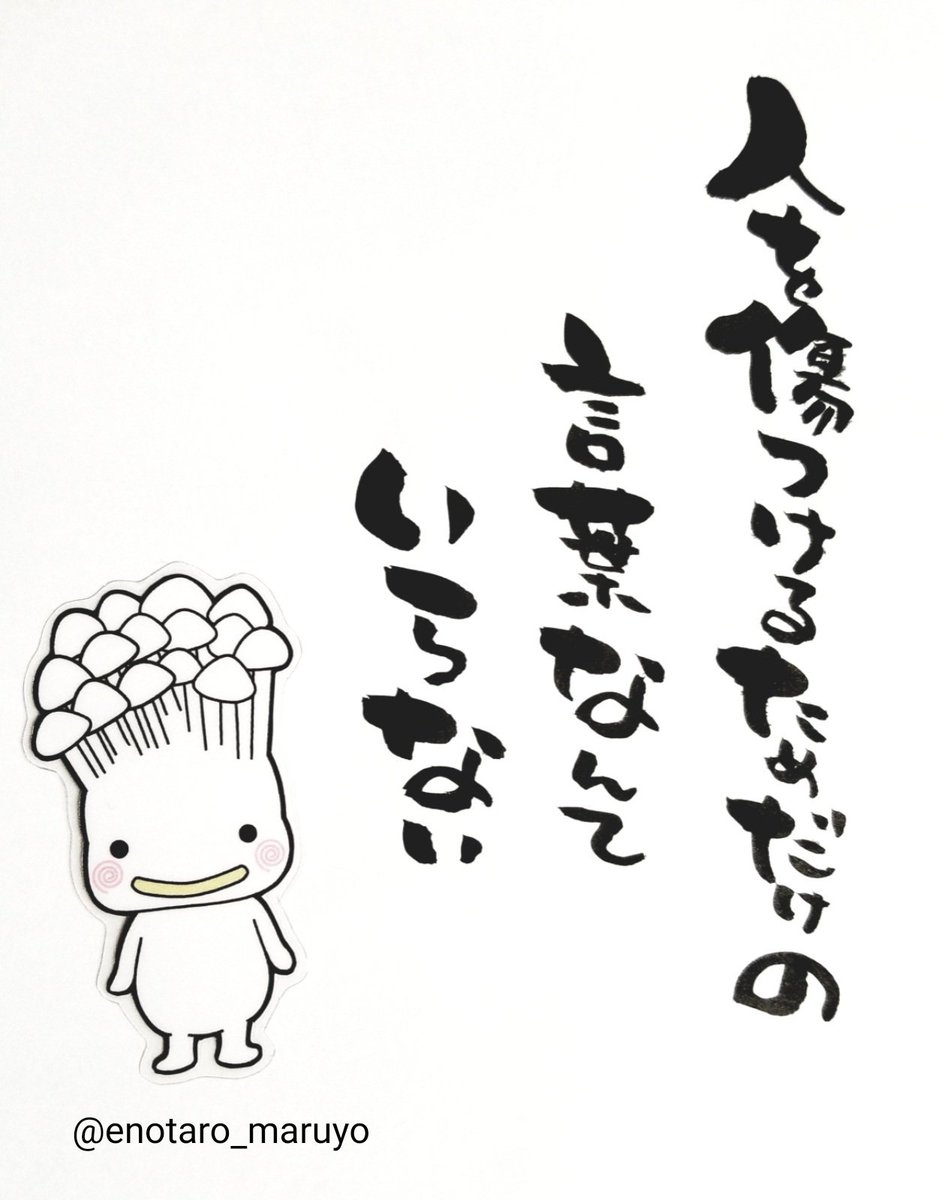 人を傷つけるためだけの
言葉なんて
いらない
@enotaro_maruyo